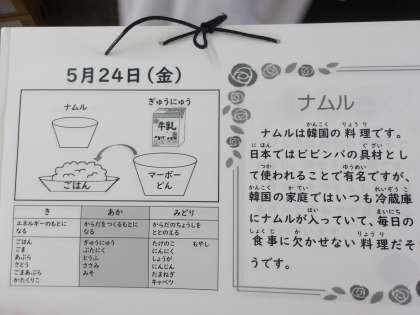 5月24日(金)
ナムル
ぎゅうにゅう
牛乳
ごはん
マーボー
どん
き
あか
みどり
エネルギーのもとに
なる
からだをつくるもとに
なる
からだのちょうしを
ととのえる
ごはん
ごま
あぶら
さとう
ごまあぶら
かたくりこ
ぎゅうにゅう
ぶたにく
とうふ
ささみ
みそ
たけのこ もやし
にんにく
しょうが
にんじん
たまねぎ
キャベツ
ナムル
かんこく りょうり
ナムルは韓国の料理です。
にほん ぐざい
日本ではビビンバの具材とし
つか ゆうめい
て使われることで有名ですが、
かんこく かてい れいぞうこ
韓国の家庭ではいつも冷蔵庫
はい まいにち
にナムルが入っていて、毎日の
しょくじ か りょうり
食事に欠かせない料理だそ
うです。